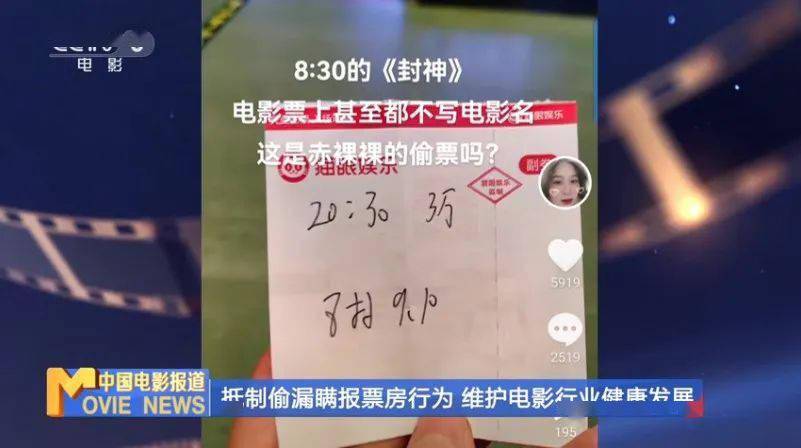 电影
8:30的《封神》
电影票上甚至都不写电影名
这是赤裸裸的偷票吗?
猫眼娱乐
副券
20:30 3厅
8排 9,10
5919
2519
195
中国电影报道
MOVIE NEWS
抵制偷漏瞒报票房行为 维护电影行业健康发展